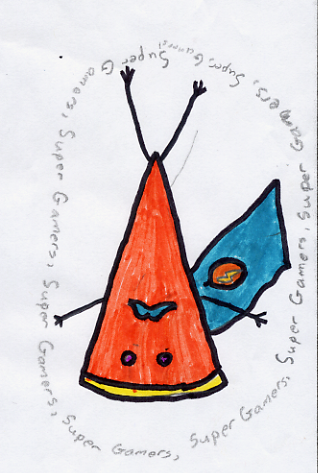 Super Gamers, Super Gamers, Super Gamers, Super Gamers, Super Gamers, Super Gamers, Super Gamers, Super Gamers